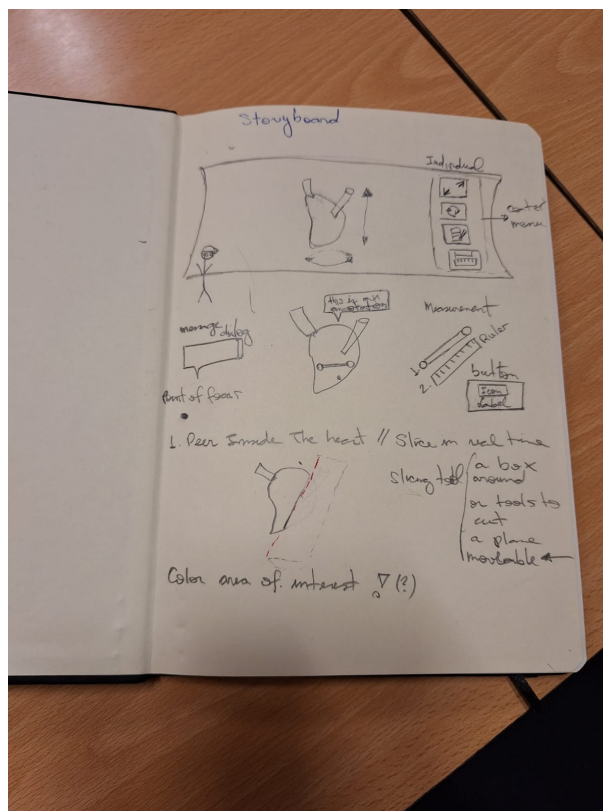 Storyboard
Individual
menu
message dialog
Point of focus
this is my
annotation
Measurement
1.
2.
Ruler
button
Icon
Label
1. Peer Inside The heart // Slice in real time
Slicing tool
a box
around
or tools to
cut
a plane
moveable
Color area of interest ! (?)